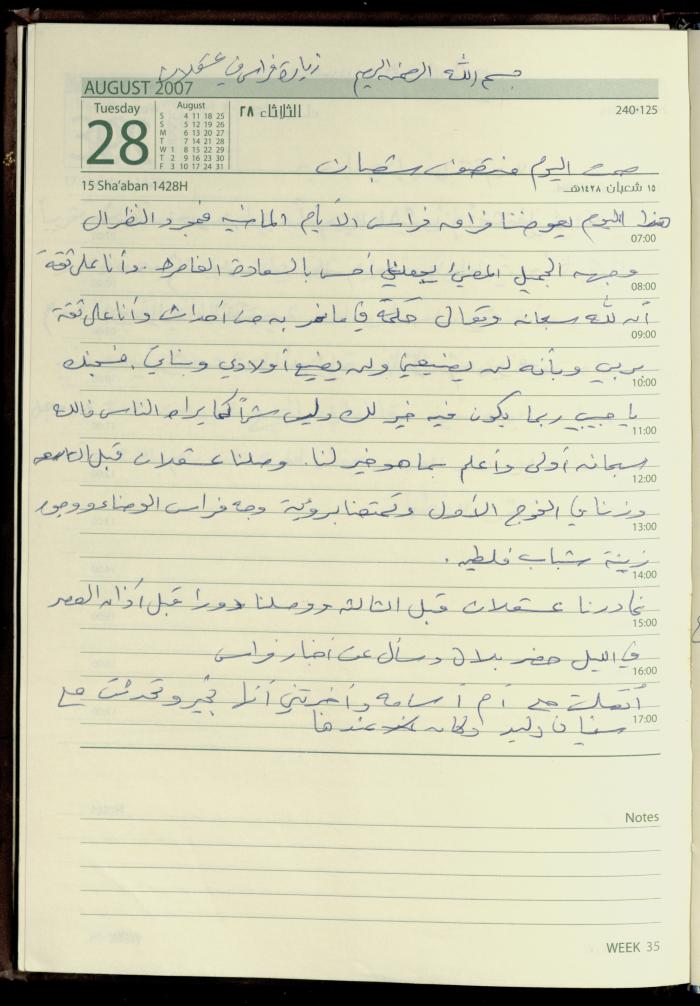 بسم الله الرحمن الرحيم زيارة فراس في عسقلان
AUGUST 2007
Tuesday
28
August
S 4 11 18 25
S 5 12 19 26
M 6 13 20 27
T 7 14 21 28
W 1 8 15 22 29
T 2 9 16 23 30
F 3 10 17 24 31
الثلاثاء ٢٨
240-125
صمت اليوم منتصف شعبان
15 Sha'aban 1428H
١٥ شعبان ١٤٢٨هـ
هذا اليوم يعوضنا فراق فراس الأيام الماضية فمجرد النظر إلى
07:00
وجهه الجميل المضيء يجعلني أحس بالسعادة الغامرة. وأنا على ثقة
08:00
أن لله سبحانه وتعالى حكمة في ما نمر به من أحداث وأنا على ثقة
09:00
بربي وبأنه لن يضيعني ولن يضيع أولادي وبناتي. فسجنك
10:00
يا حبيبي ربما يكون فيه خير لك وليس شراً كما يراه الناس فالله
11:00
سبحانه أولى وأعلم بما هو خير لنا. وصلنا عسقلان قبل
12:00
وزرنا في الفوج الأول وتمتعنا برؤية وجه فراس الوضاء ووجوه
13:00
زينة شباب فلسطين.
14:00
غادرنا عسقلان قبل الثالثة ووصلنا دورا قبل أذان العصر
15:00
في الليل حضر بلال وسأل عن أخبار فراس
16:00
اتصلت مع أم أسامة وأخبرتني أنها بخير وتحدثت مع
17:00
وليد وكان عندها
Notes
WEEK 35